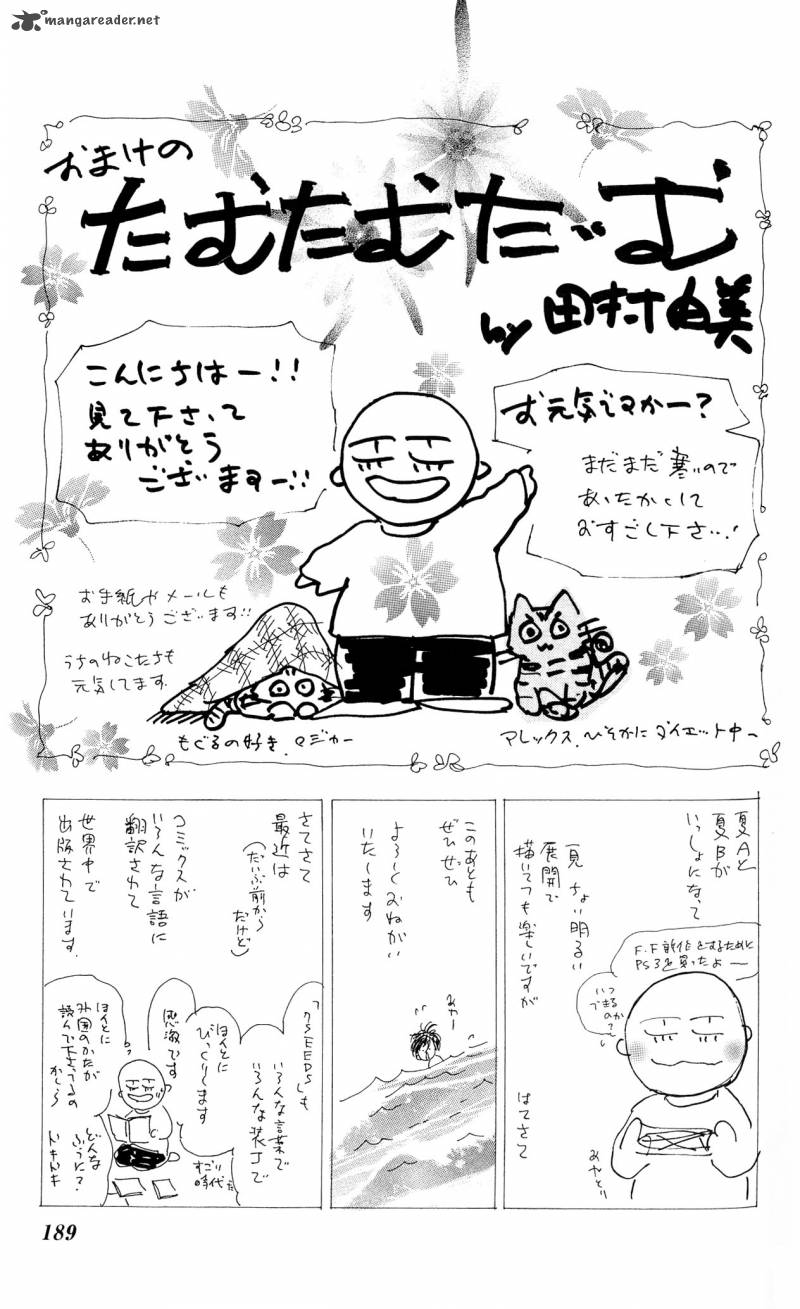 mangareader.net
おまけの
たむたむたいむ
by 田村由美
こんにちはー!!
見て下さって
ありがとう
ございますー!!
お元気ですかー?
まだまだ寒いので
あったかくして
おすごし下さい!
お手紙やメールも
ありがとうございます!!
うちのねこたちも
元気してます.
もぐるの好き.マジカー
アレックス.ひそかにダイエット中ー
夏Aと
夏Bが
いっしょになって
一見ちょい明るい
展開で
描いてても楽しいですが
はてさて
F.F新作をするために
PS3を買ったよー
いつ
できるのか?
みやとり
このあとも
ぜひぜひ
よろしくおねがい
いたします
みゃー
さてさて
最近は
(だいぶ前から
だけど)
コミックスが
いろんな言語に
翻訳されて
世界中で
出版されています.
「7SEEDS」も
いろんな言葉で
いろんな装丁で
ほんとに
びっくりします
感激です
すごい
時代だ
ほんとに
外国のかたが
読んで下さってるの
かしら
どんな
ふうに?
ドキドキ
189